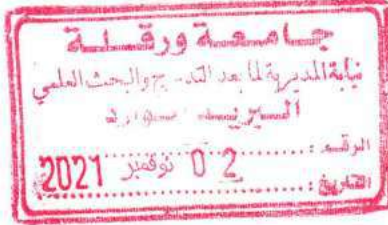 جامعة ورقلة
نيابة المديرية لما بعد التدرج والبحث العلمي
البريد
الرقم :
التاريخ : 02 نوفمبر 2021